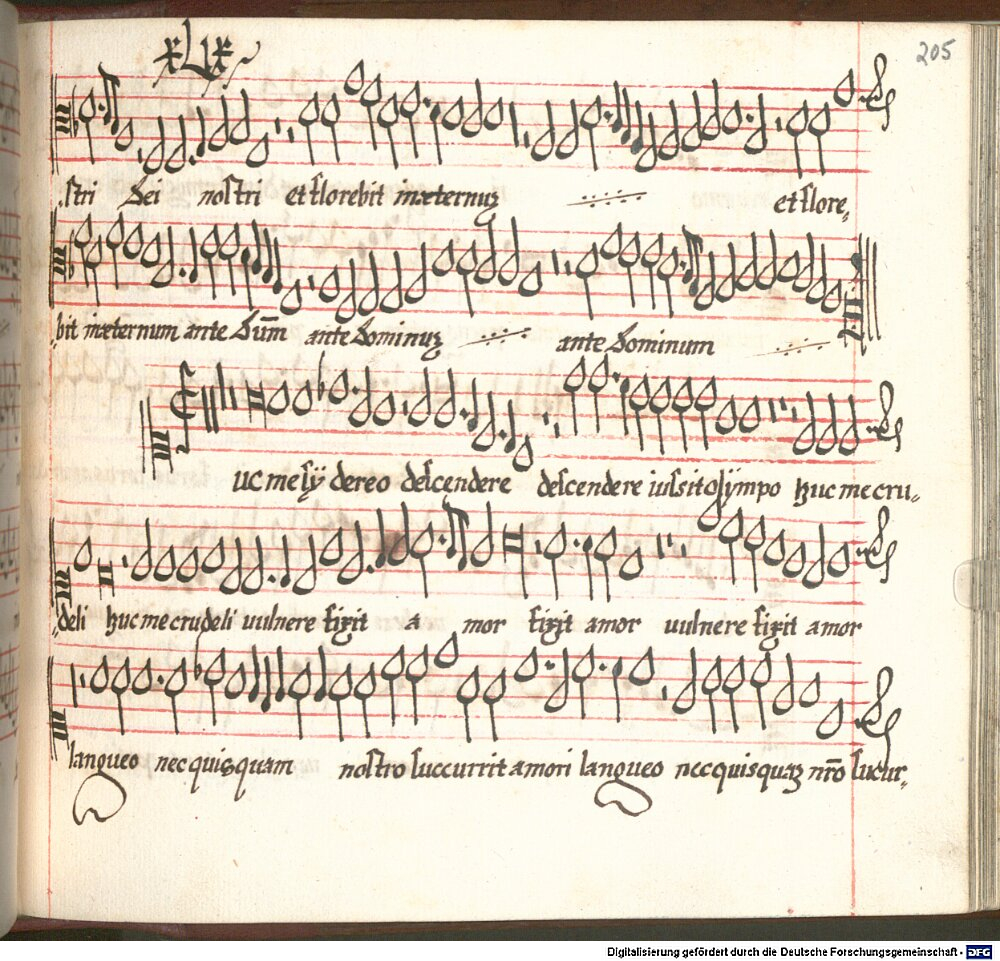 xLix
205
stri Dei nostri et florebit inæternuz et flore„
bit inæternum ante Dūm ante Dominuz ante Dominum
uc me sydereo descendere descendere iussit olympo huc me cru„
deli huc me crudeli vulnere fixit a mor fixit amor vulnere fixit amor
langueo nec quisquam nostro succurrit amori langueo nec quisquaz nr̄o sucur„
Digitalisierung gefördert durch die Deutsche Forschungsgemeinschaft - DFG